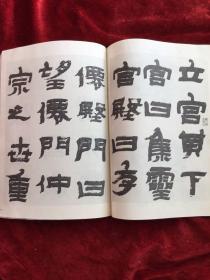 立宮其下
宮曰集靈
宮壂曰存
僊壂門曰
望僊門仲
宗之世重